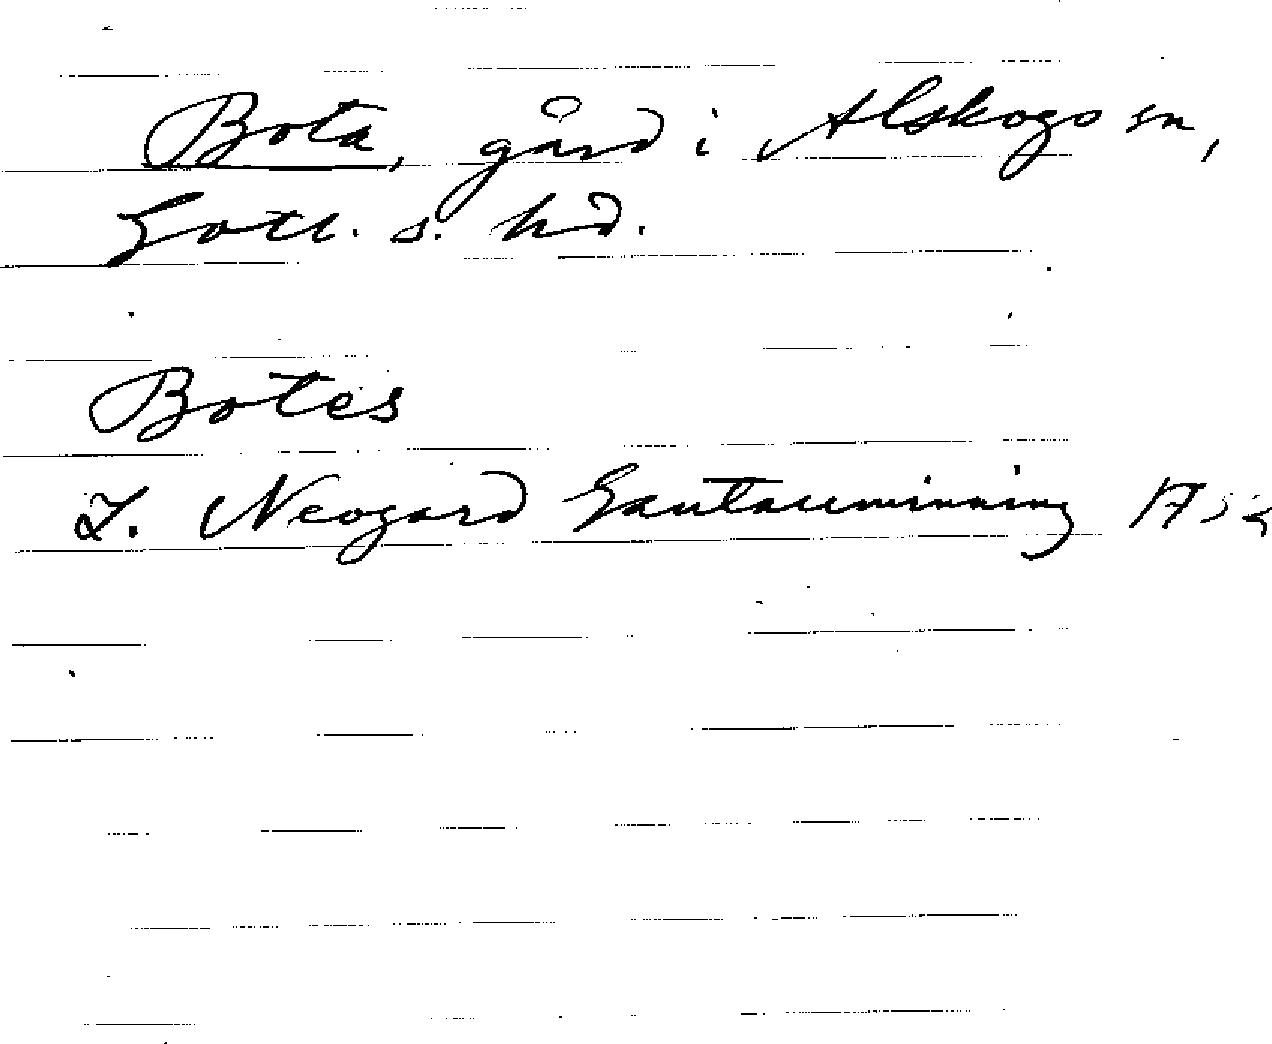 Bota, gård i Alskogs sn,
Gotl. s. hd.
Botes
J. Neogard Gautauminning